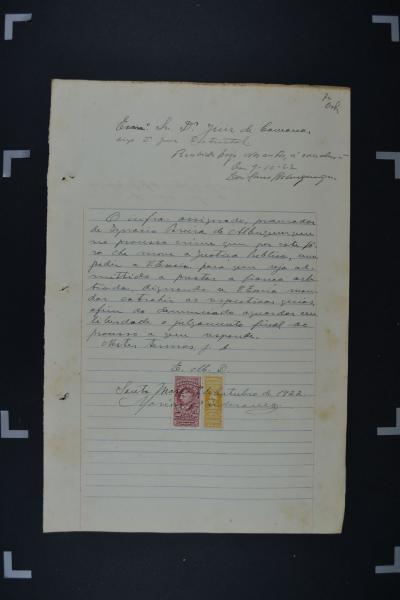 Exmo. Sr. Dr. Juiz de Comarca,
digo D. Juiz Districtal
Recebida hoje
Em 9-10-22
O infra-assignado, procurador
de Ignacio Pereira de Albuquerque
no processo crime que por este fô-
ro lhe move a Justiça Publica, vem
pedir a V Excia para que seja ad-
mettido a prestar a fiança arbi-
trada, dignando-se V Excia man-
dar extrahir as respectivas guias,
afim do denunciado aguardar em
liberdade o julgamento final do
processo a que responde.
Nestes termos j. a
E. M.
Santa Maria outubro de 1922